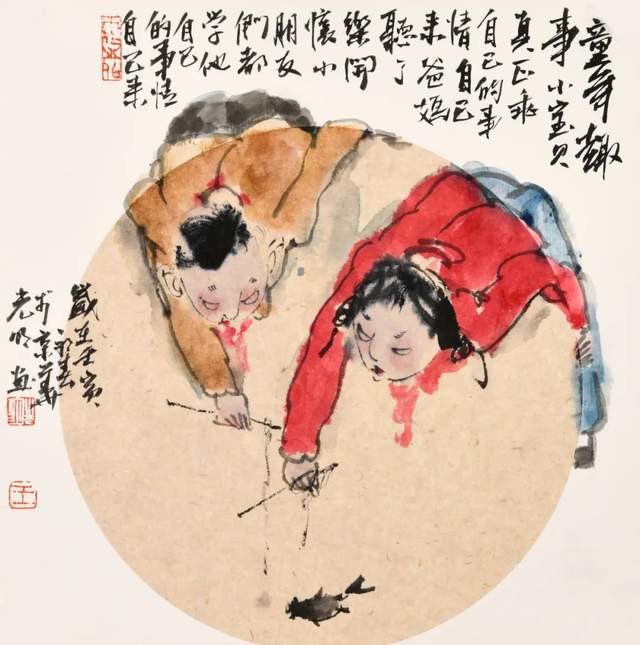 童年趣
事小宝贝
真正乖
自己的事
情自己
来爸妈
聽了
樂開
懷小
朋友
們都
学他
自己
的事情
自己来
歲在壬寅
初春
於京華
光明画